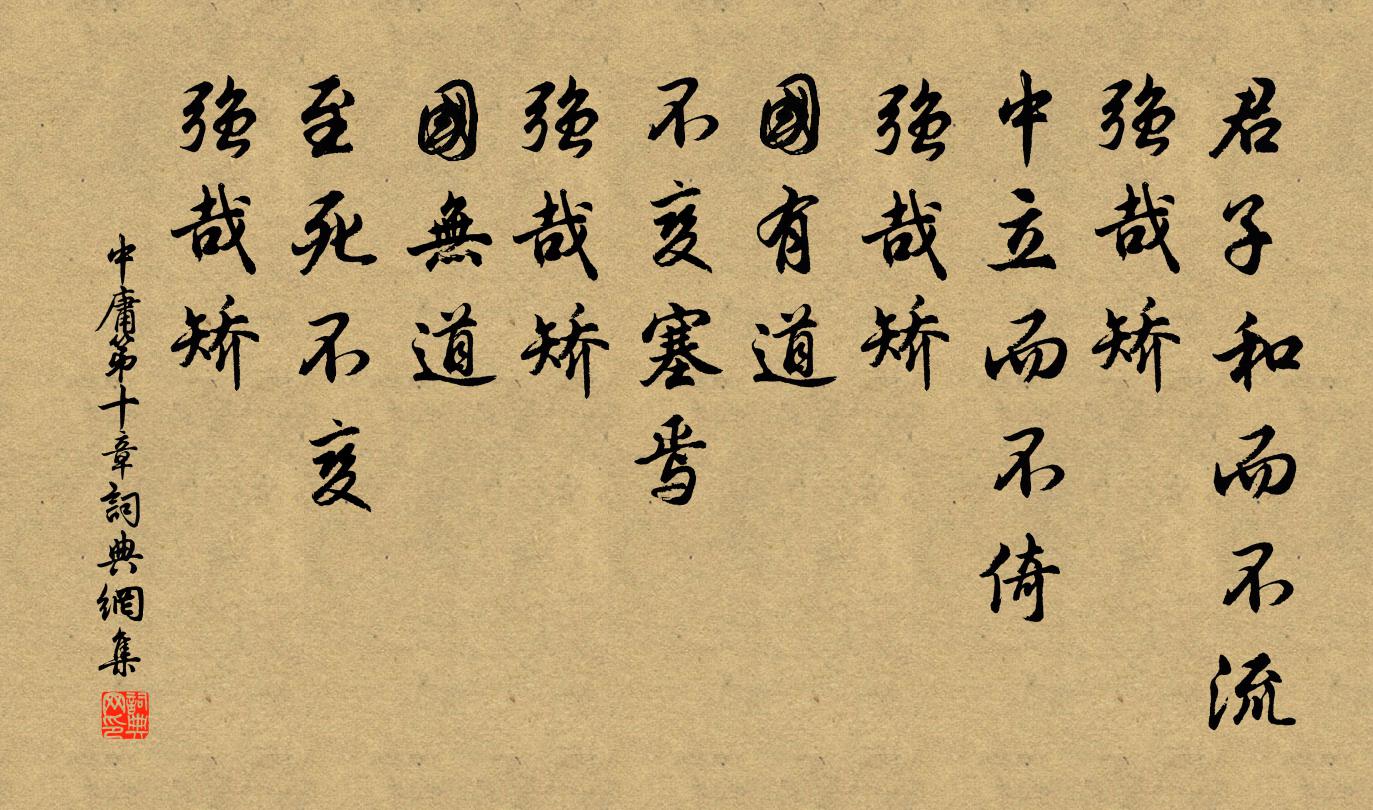 君子和而不流
強哉矯
中立而不倚
強哉矯
國有道
不變塞焉
強哉矯
國無道
至死不變
強哉矯
中庸第十章詞典網集
詞典网印